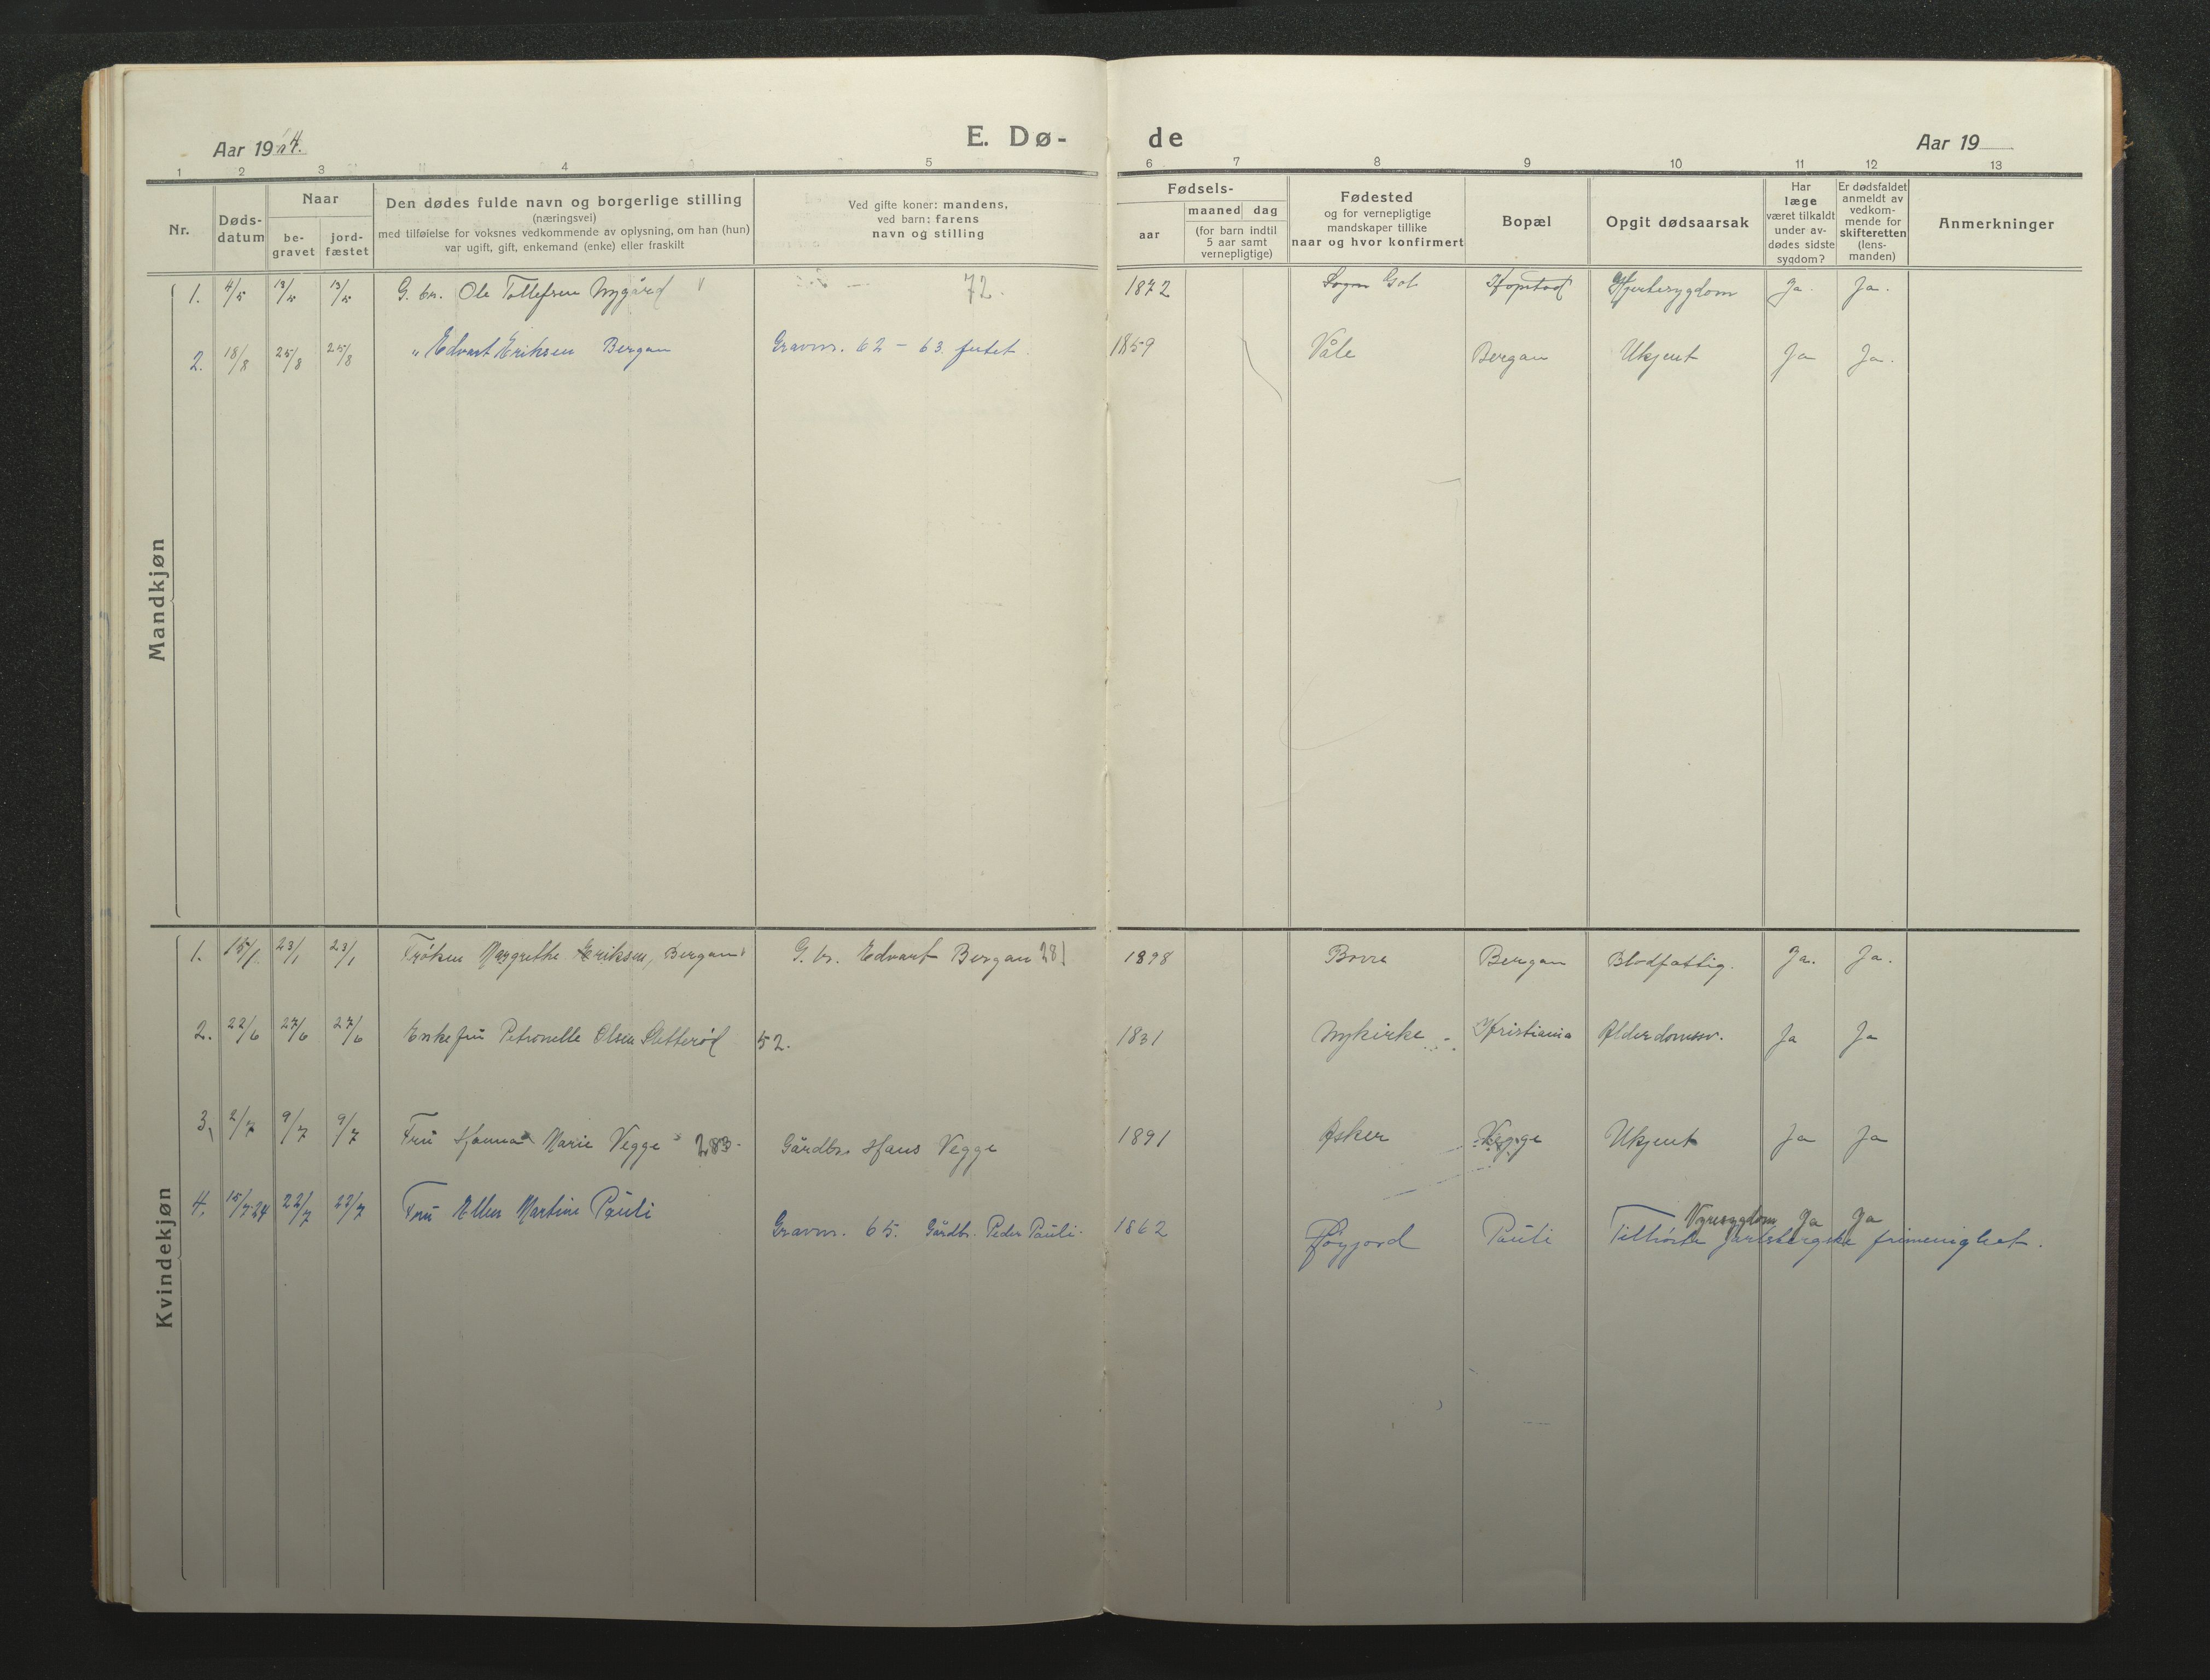 Aar 1924.
E. Dø-
de
Aar 19
1 2 3 4 5 6 7 8 9 10 11 12 13
Nr.
Døds-
datum
Naar
be-
gravet
jord-
fæstet
Den dødes fulde navn og borgerlige stilling
(næringsvei)
med tilføielse for voksnes vedkommende av oplysning, om han (hun)
var ugift, gift, enkemand (enke) eller fraskilt
Ved gifte koner: mandens,
ved barn: farens
navn og stilling
Fødsels-
aar
maaned dag
(for barn indtil
5 aar samt
vernepligtige)
Fødested
og for vernepligtige
mandskaper tillike
naar og hvor konfirmert
Bopæl
Opgit dødsaarsak
Har
læge
været tilkaldt
under av-
dødes sidste
sygdom?
Er dødsfaldet
anmeldt av
vedkom-
mende for
skifteretten
(lens-
manden)
Anmerkninger
Mandkjøn
1. 4/5 13/5 13/5 G. br. Ole Tollefsen Nygård 72. 1872 Sogn Gol Kopstad Hjertesygdom Ja. Ja.
2. 18/8 25/8 25/8 " Edvart Eriksen Bergan Gravnr. 62 - 63. 1859 Våle Bergan Ukjent Ja Ja.
Kvindekjøn
1. 15/1. 23/1 23/1 Frøken Margrethe Eriksen, Bergan G. br. Edvart Bergan 281 1898 Borre Bergan Blodfattig. Ja. Ja.
2. 22/6 27/6 27/6 Enkefru Petronelle Olsen Sletterød 52. 1831 Nykirke Kristiania Alderdomssv. Ja Ja
3. 2/7 9/7 9/7 Fru Hanna Marie Vegge 283. Gårdbr. Hans Vegge 1891 Asker Vegge Ukjent Ja Ja
4. 15/7-24 22/7 22/7 Fru Ellen Martine Pauli Gravnr. 65. Gårdbr. Peder Pauli. 1862 Føyjord Pauli Nyresygdom Ja Ja
Tilhørte Jarlsbergske frimenighet.